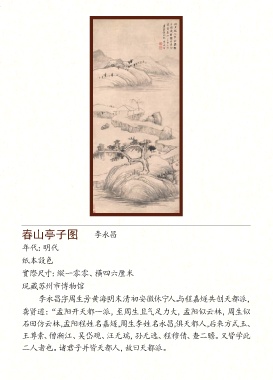 春山亭子图 李永昌
年代：明代
纸本设色
实际尺寸：纵一零零、横四六厘米
现藏苏州市博物馆
李永昌字周生号黄海，明末清初安徽休宁人，与程嘉燧共创天都派，
龚贤道：“孟阳开天都一派，至周生且气足力大，孟阳似云林，周生似
石田仿云林，孟阳程姓名嘉燧，周生李姓名永昌，俱天都人，后来方式玉、
王尊素、僧渐江、吴岱观、汪无瑞、孙无逸、程穆倩、查二瞻，又皆学此
二人者也。诸君子并皆天都人，故曰天都派。